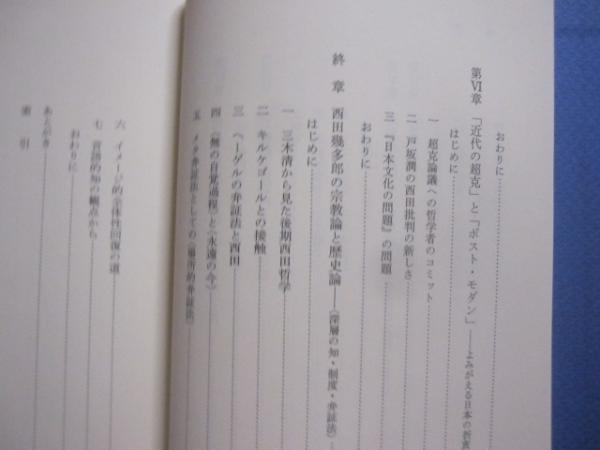 おわりに
第Ⅵ章 「近代の超克」と「ポスト・モダン」――よみがえる日本の哲
はじめに
一 超克論議への哲学者のコミット
二 戸坂潤の西田批判の新しさ
三 『日本文化の問題』の問題
おわりに
終章 西田幾多郎の宗教論と歴史論――〈深層の知・制度・弁証法〉
はじめに
一 三木清から見た後期西田哲学
二 キルケゴールとの接触
三 ヘーゲルの弁証法と西田
四 〈無の自覚過程〉と〈永遠の今〉
五 メタ弁証法としての〈場所的弁証法〉
六 イメージ的全体性回復の道
七 言語的知の観点から
おわりに
あとがき
索引